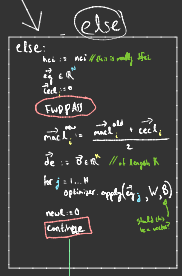 else
else:
nci := nci // this is really
eg ∈ ℝᴺ
cecl := 0
FWDPASS
macl_i^new = (macl_i^old + cecl_i) / 2
de := B ∈ ℝᴷ // of length K
for j = 1...N
optimizer.apply(eg_j, W, B)
should this be a vector?
new := 0
Continue